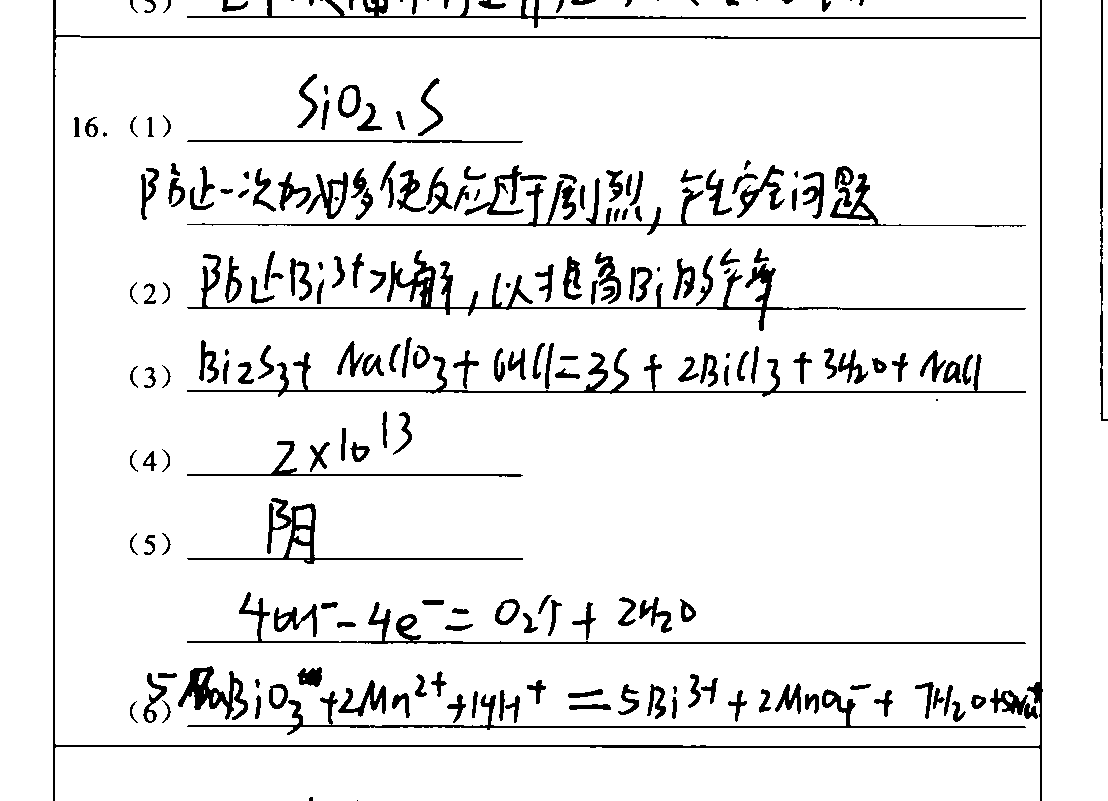 (5)
16. (1) SiO₂、S
防止一次加过多使反应过于剧烈,产生安全问题
(2) 防止Bi³⁺水解,以提高Bi的产率
(3) Bi₂S₃+ NaClO₃+6HCl=3S+2BiCl₃+3H₂O+NaCl
(4) 2×10¹³
(5) 阴
4OH⁻-4e⁻=O₂↑+2H₂O
(6) 5NaBiO₃+2Mn²⁺+14H⁺=5Bi³⁺+2MnO₄⁻+7H₂O+5Na⁺